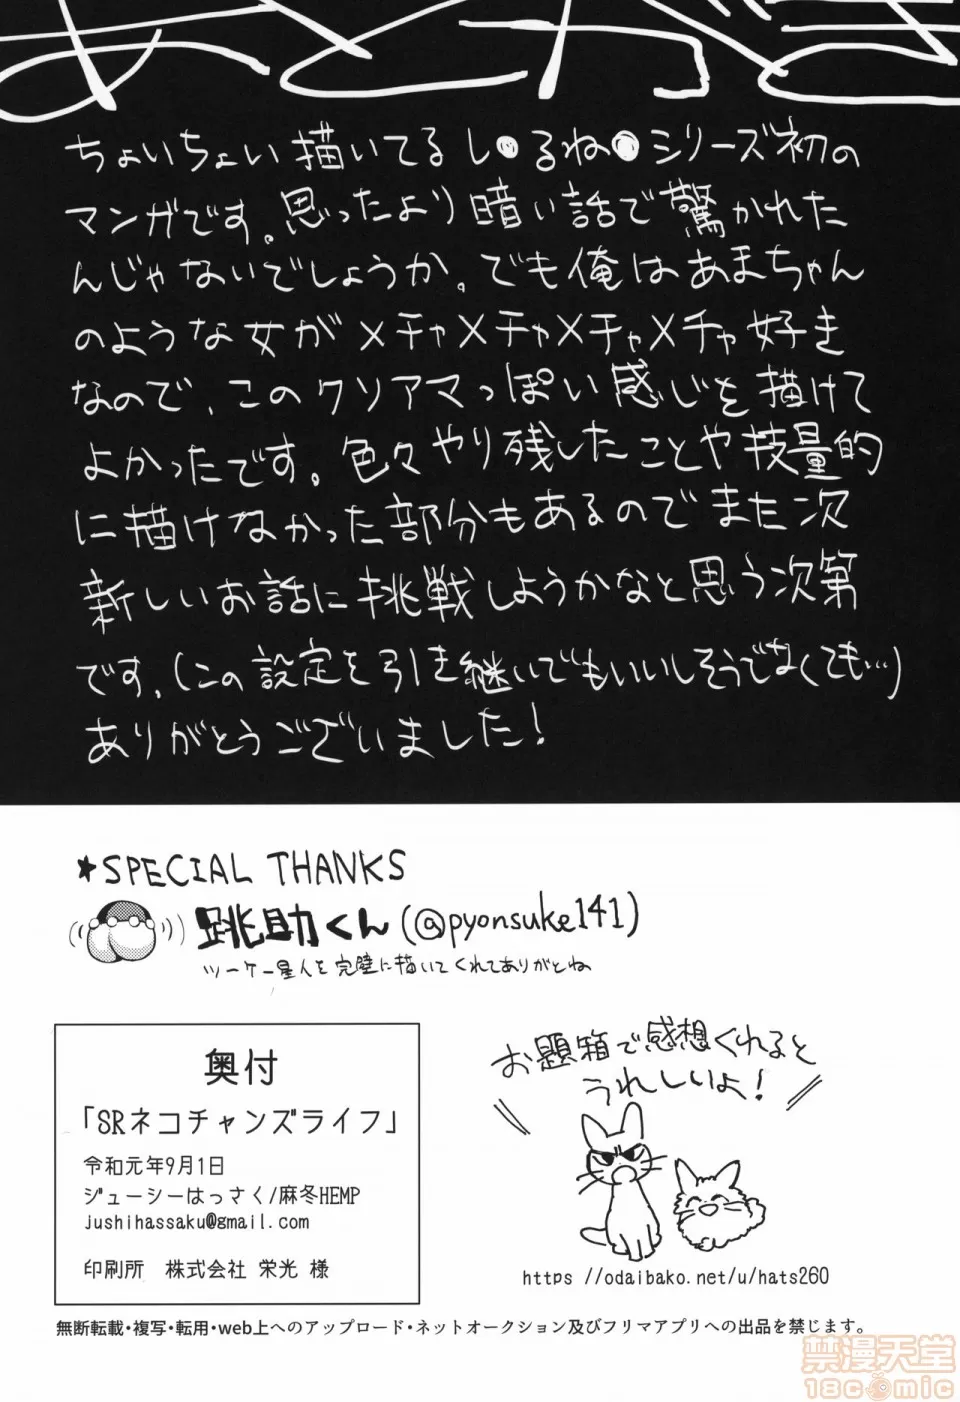 あとがき
ちょいちょい描いてるし●るね●シリーズ初の
マンガです。思ったより暗い話で驚かれた
んじゃないでしょうか。でも俺はあまちゃん
のような女がメチャメチャメチャメチャ好き
なので、このクソアマっぽい感じを描けて
よかったです。色々やり残したことや技量的
に描けなかった部分もあるのでまた次
新しいお話に挑戦しようかなと思う次第
です。(この設定を引き継いでもいいしそうでなくても…)
ありがとうございました!
★SPECIAL THANKS
跳助くん(@pyonsuke141)
ツーケー星人を完璧に描いてくれてありがとね
奥付
「SRネコチャンズライフ」
令和元年9月1日
ジューシーはっさく/麻冬HEMP
jushihassaku@gmail.com
印刷所 株式会社 栄光 様
お題箱で感想くれると
うれしいよ!
https //odaibako.net/u/hats260
無断転載・複写・転用・web上へのアップロード・ネットオークション及びフリマアプリへの出品を禁じます。
禁漫天堂
18comic